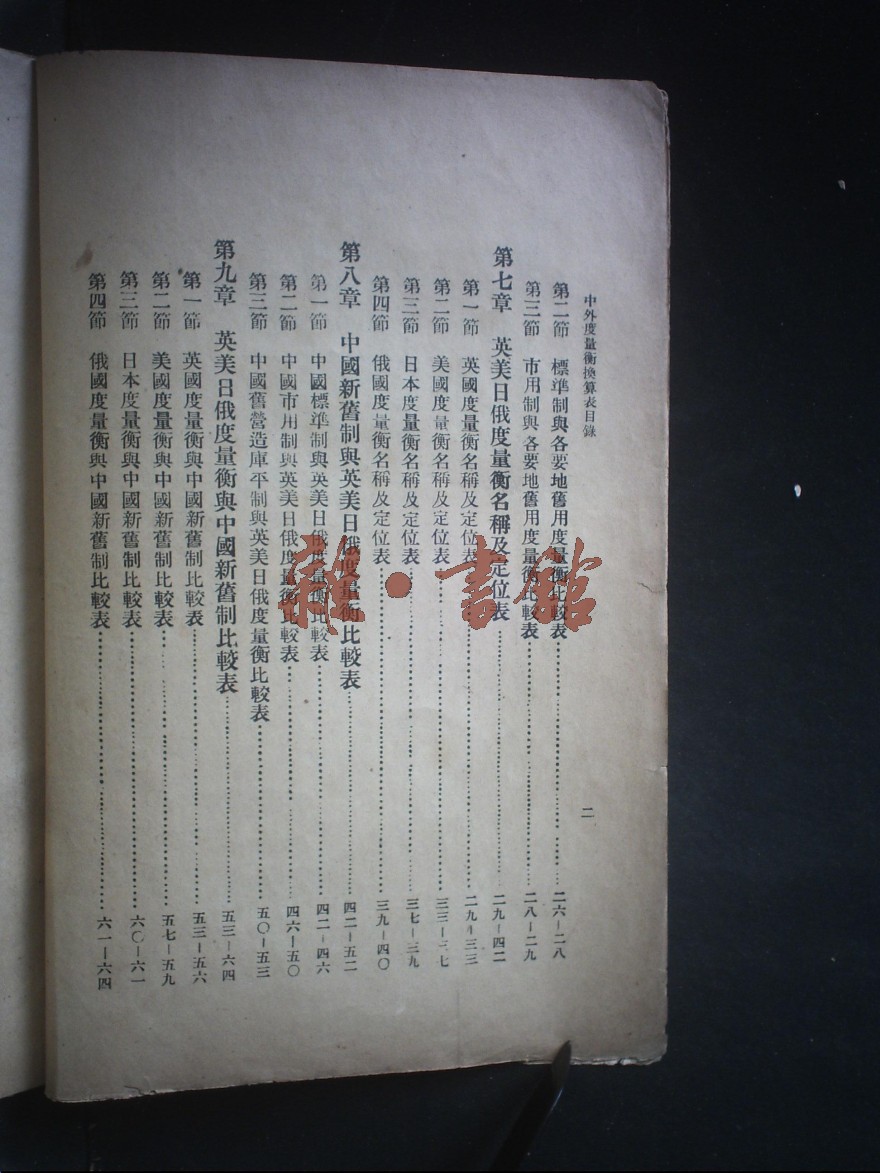 中外度量衡換算表目錄
二
第二節 標準制與各要地舊用度量衡比較表 二六－二八
第三節 市用制與各要地舊用度量衡比較表 二八－二九
第七章 英美日俄度量衡名稱及定位表 二九－四二
第一節 英國度量衡名稱及定位表 二九－三三
第二節 美國度量衡名稱及定位表 三三－三七
第三節 日本度量衡名稱及定位表 三七－三九
第四節 俄國度量衡名稱及定位表 三九－四〇
第八章 中國新舊制與英美日俄度量衡比較表 四二－五二
第一節 中國標準制與英美日俄度量衡比較表 四二－四六
第二節 中國市用制與英美日俄度量衡比較表 四六－五〇
第三節 中國舊營造庫平制與英美日俄度量衡比較表 五〇－五三
第九章 英美日俄度量衡與中國新舊制比較表 五三－六四
第一節 英國度量衡與中國新舊制比較表 五三－五六
第二節 美國度量衡與中國新舊制比較表 五七－五九
第三節 日本度量衡與中國新舊制比較表 六〇－六一
第四節 俄國度量衡與中國新舊制比較表 六一－六四
雜·書館